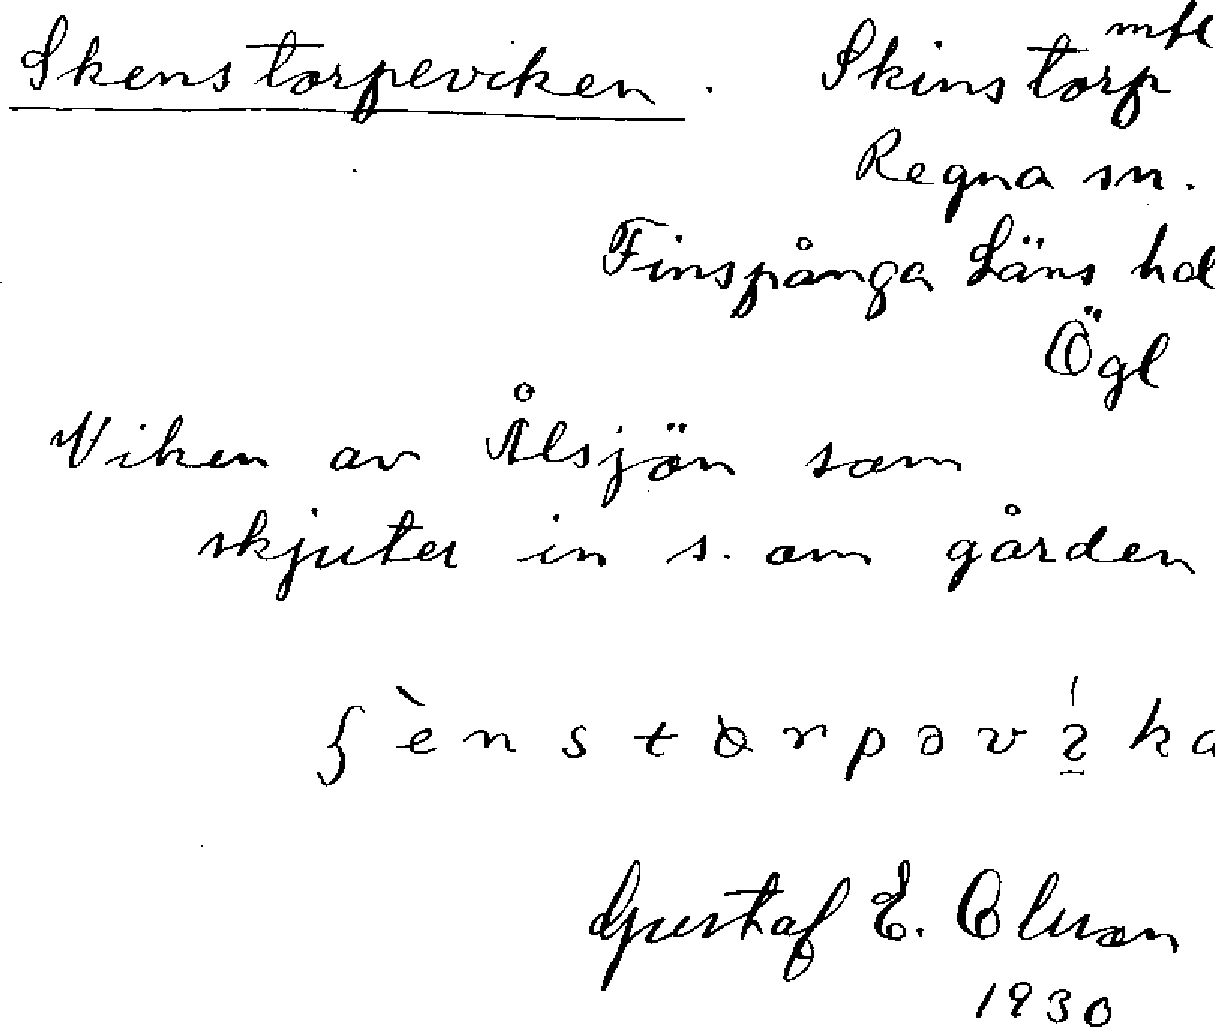 Skenstorpeviken. Skinstorp mfl
Regna sn.
Finspånga Läns hd
Ögl
Viken av Ålsjön som
skjuter in s. om gården
Gustaf E. Olsson
1930